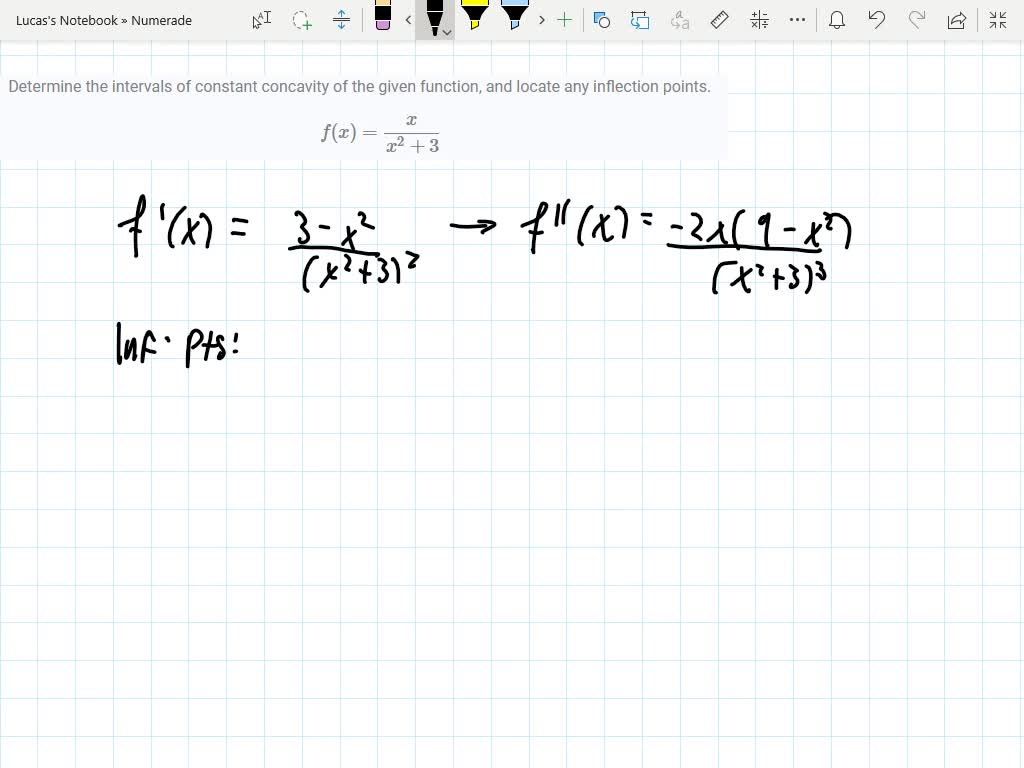 Lucas's Notebook » Numerade
Determine the intervals of constant concavity of the given function, and locate any inflection points.
f(x) = x / (x² + 3)
f'(x) = (3 - x²) / (x² + 3)² → f''(x) = -2x(9 - x²) / (x² + 3)³
Inf. pts: